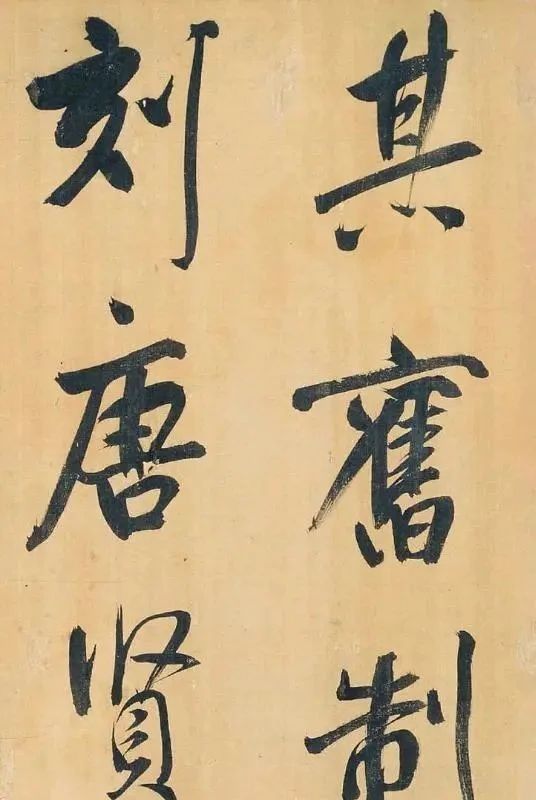 其舊制
刻唐賢